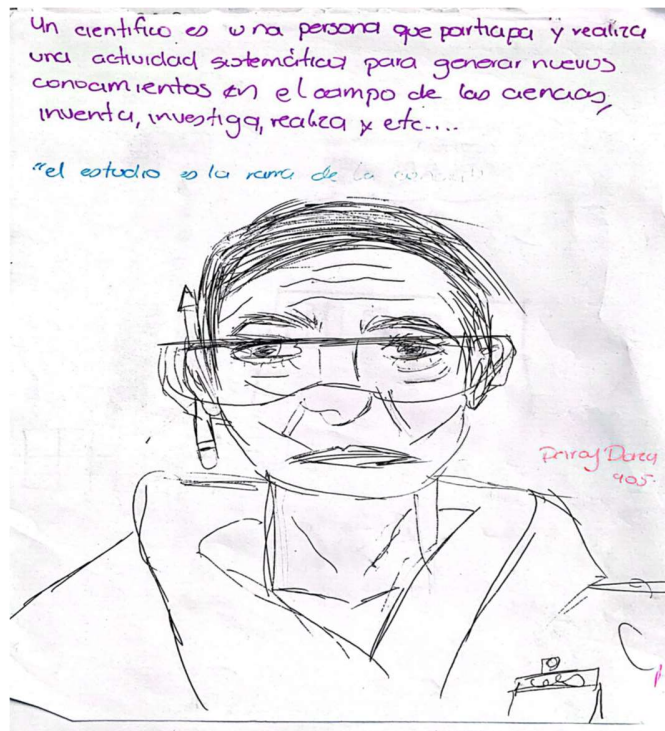 Un cientifico es una persona que participa y realiza
una actividad sistemática para generar nuevos
conocimientos en el campo de las ciencias,
inventa, investiga, realiza y etc....
"el estudio es la rama de la
Darcy
905.